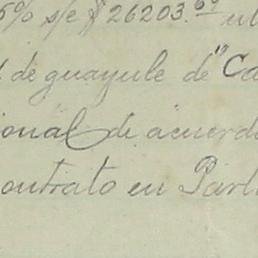 5% s/e $26203.60 ul
de guayule de "Ca
ional de acuerdo
ontrato en Parl